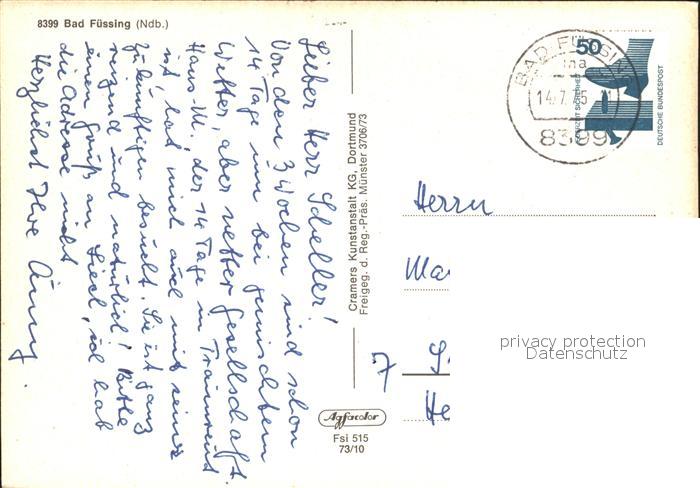 8399 Bad Füssing (Ndb.)
Lieber Herr Scheller!
Von den 3 Wochen sind schon
14 Tage um bei gemischtem
Wetter, aber netter Gesellschaft.
Haus-M. der 14 Tage in Traunreut
ist hat mich auch mit seiner
zukünftigen besucht. Sie ist ganz
reizend und natürlich! Bitte
einen Gruß an Liesl, ich hab
die Adresse nicht
Herzlichst Ihre Änny.
Cramers Kunstanstalt KG, Dortmund
Freigeg. d. Reg.-Präs. Münster 3706/73
Agfacolor
Fsi 515
73/10
BAD FÜSSING
14.7.75
8399
50
DEUTSCHE BUNDESPOST
Herrn
Ma
7
He
privacy protection
Datenschutz